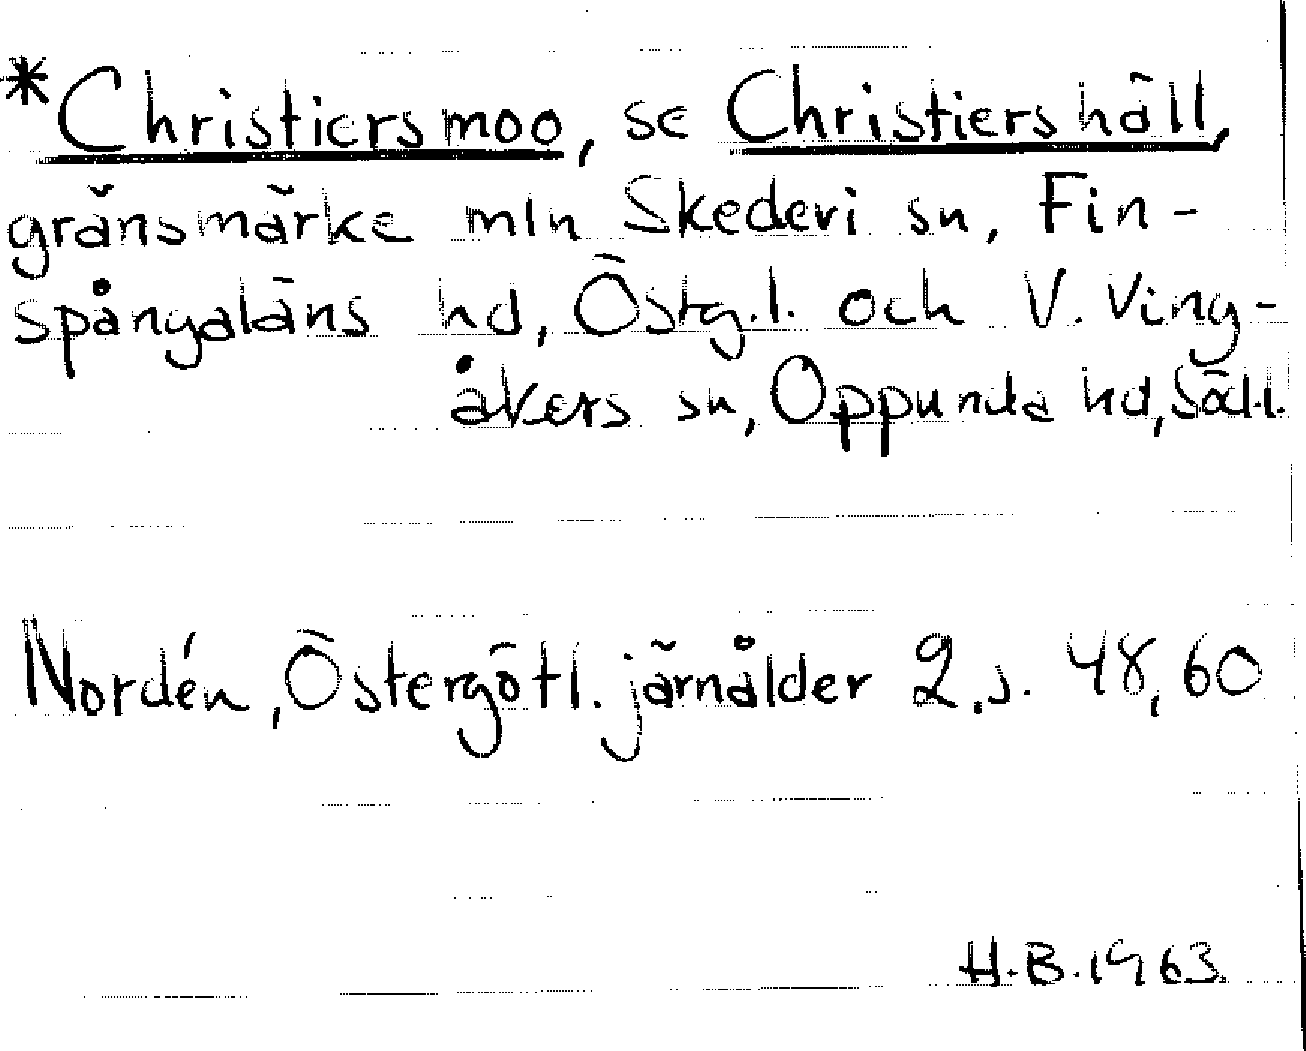 *Christiersmoo, se Christiershäll,
gränsmärke mln Skedevi sn, Fin-
spångaläns hd, Östg.l. och V. Ving-
åkers sn, Oppunda hd, Södl.
Nordén, Östergötl. järnålder 2.s. 48, 60
H.B. 1963